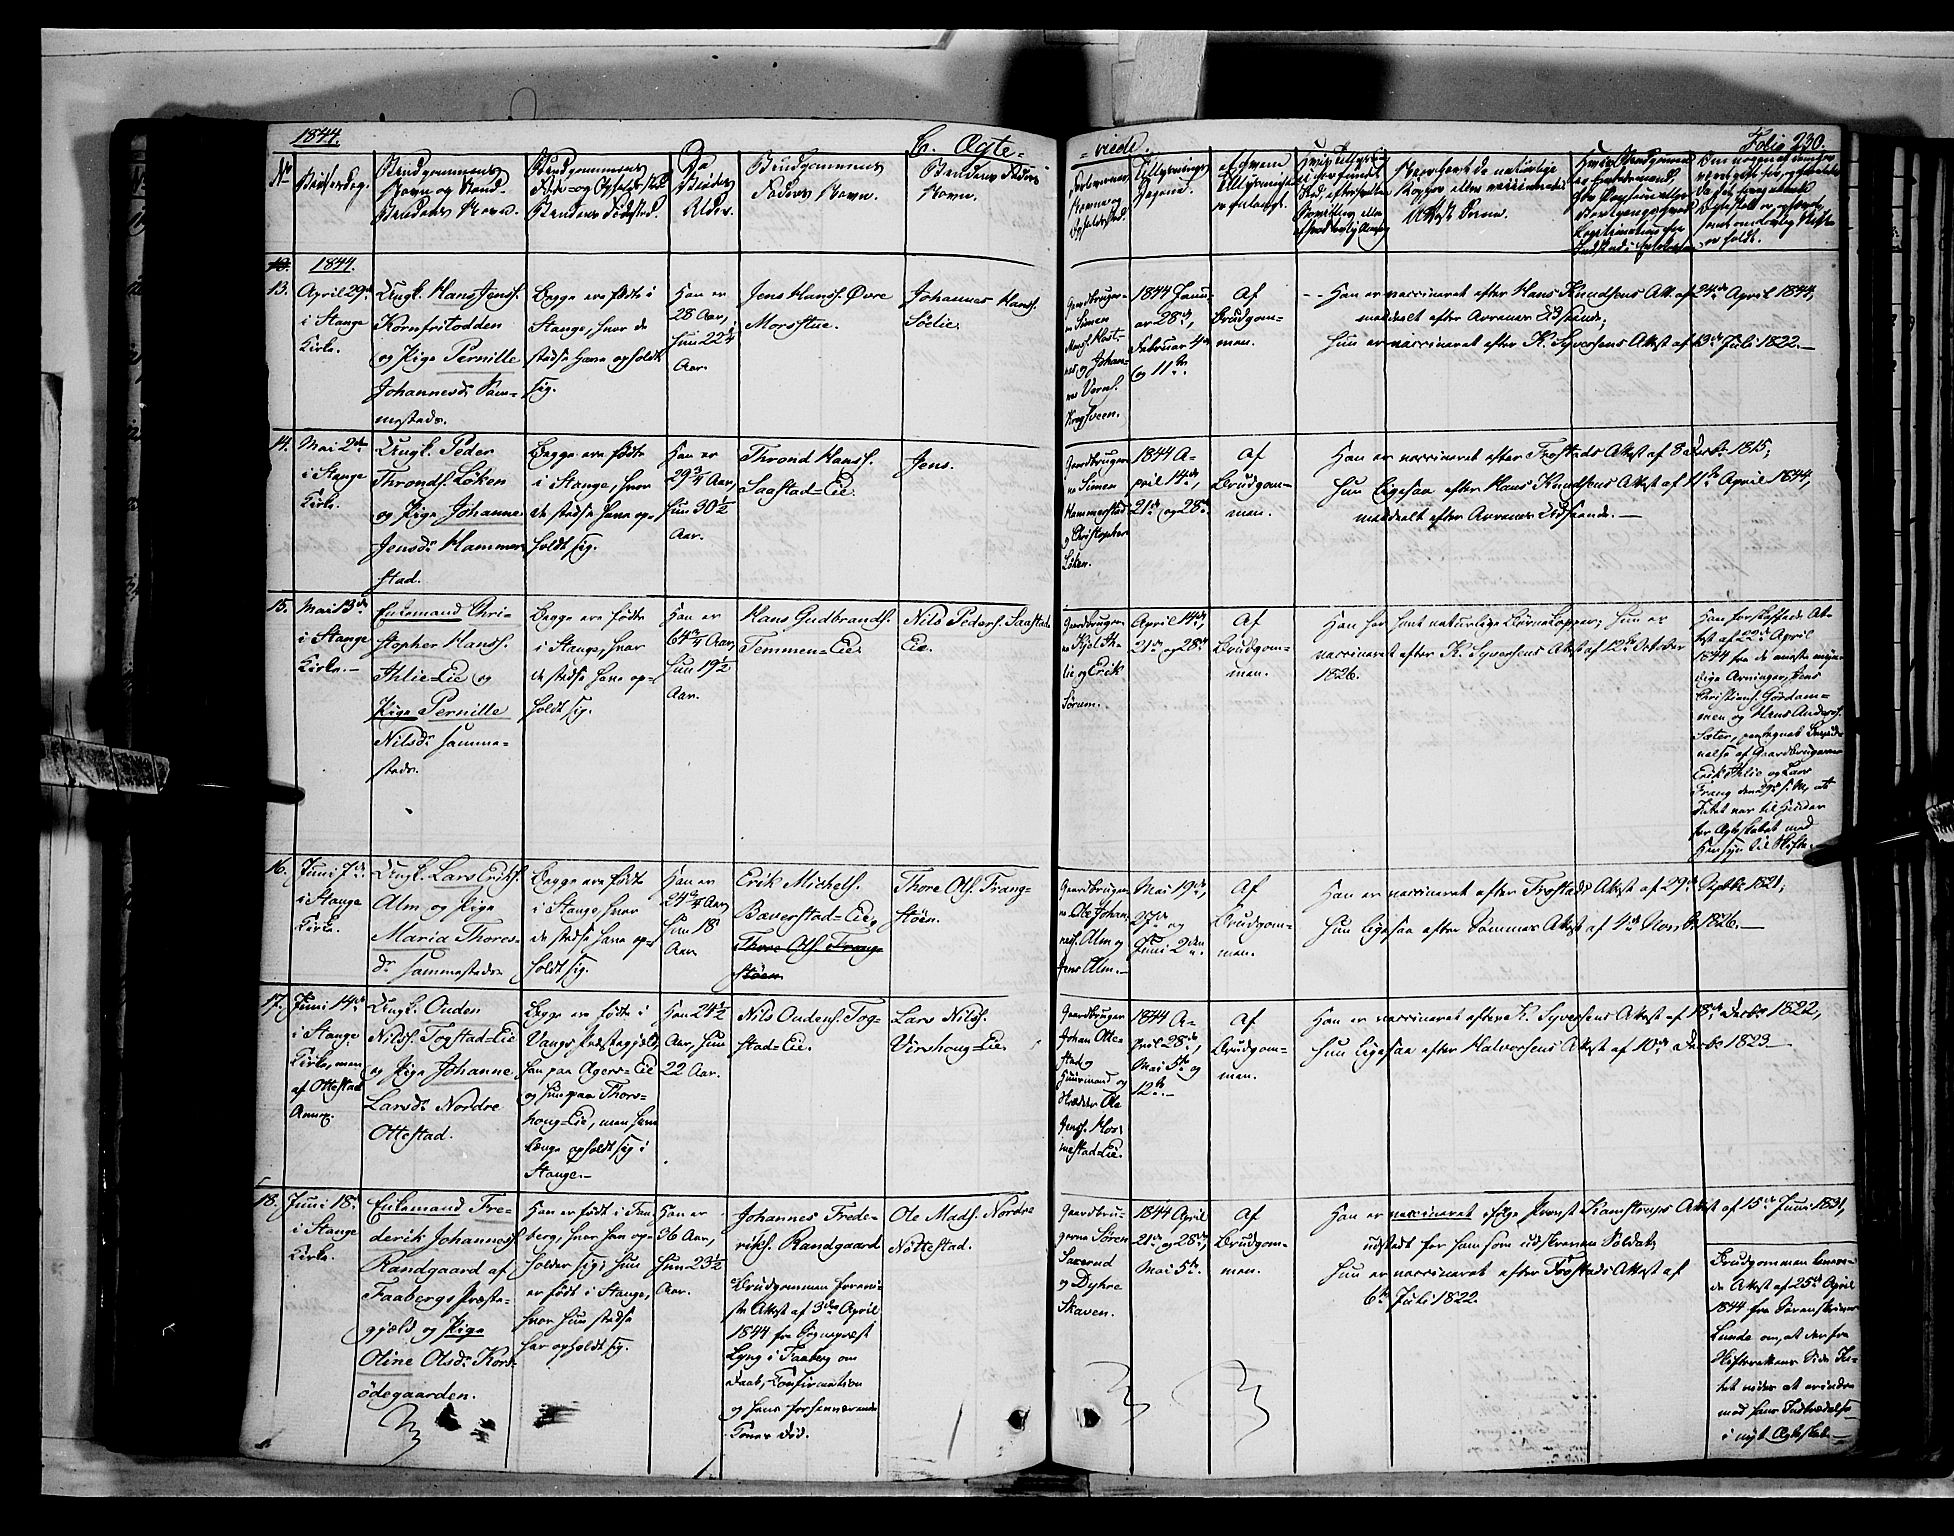 1844.
C. Ægte-
-viede.
Folio 230.
No
Vielsesdag.
Brudgommens
Navn og Stand
Brudens Navn.
Brudgommens
Brudens Fødested.
De
Alder.
Brudgommens
Faders Navn.
Brudens Faders
Navn.
Forlovernes
Navne og
Opholdssted.
Tillysnings
Dagene.
af hvem
er forlangt.
1844.
13.
April 29de
i Stange
Kirke.
Ungk. Hans Jens.
Kornfritodden
og Pige Pernille
Johannesdr Sam-
mesteds.
Begge ere fødte i
Stange, hvor de
stedse have opholdt
sig.
Han er
28 Aar,
hun 22¾
Aar.
Jens Hans. Øvre
Morstue.
Johannes Hans.
Sølie.
Gaardbruger-
ne Simen
1844 Janu-
ar 28de,
Februar 4de
og 11te.
Af
Brudgom-
men.
Han er vaccineret efter Hans Knudsens Att. af 24de April 1844,
meddeelt efter Arrenes Udseende;
Hun er vaccineret efter K. Syversens Attest af 13de Juli 1822.
14.
Mai 2den
i Stange
Kirke.
Ungk. Peder
Thronds. Løken
og Pige Johanne
Jensdr Hammer
stad.
Begge ere fødte
i Stange, hvor
de stedse have op-
holdt sig.
Han er
29¾ Aar,
hun 30½
Aar.
Thrond Hans.
Saastad-Eie.
Jens.
Gaardbruger-
ne Simen
Hammerstad
og Christopher
Løken.
1844 A-
pril 14de,
21de og 28de.
Af
Brudgom-
men.
Han er vaccineret efter Frostads Attest af 8 Decbr 1815;
Hun ligesaa efter Hans Knudsens Attest af 11te April 1844,
meddeelt efter Arrenes Udseende.
15.
Mai 13de
i Stange
Kirke.
Enkemand Chri-
stopher Hans.
Ahlie-Eie og
Pige Pernille
Nilsdr samme-
steds.
Begge ere fødte
i Stange, hvor
de stedse have op-
holdt sig.
Han er
64¾ Aar,
hun 19½
Aar.
Hans Gudbrands.
Temmen-Eie.
Nils Peders. Saastad-
Eie.
Gaardbruger-
ne Kjeld Ah-
lie og Erik
Sørum.
April 14de,
21de og 28de
Af
Brudgom-
men.
Han har havt naturlige Børnekopper; Hun er
vaccineret efter K. Syversens Attest af 12te October
1826.
Han forskaffede At-
test af 22de April
1844 fra de eneste myn-
dige Arvinger, Jens
Christians. Gørdam-
men og Hans Anders.
Sæter,
af Gaardbrugerne
Erik Ahlie og Lars
Frang den 29de s. M., at
Intet var til Hinder
for Ægteskabet med
Hensyn til Skifte.
16.
Juni 7de
i Stange
Kirke.
Ungk. Lars Eriks.
Alm og Pige
Maria Thores-
dr sammesteds
Begge ere fødte
i Stange, hvor
de stedse have op-
holdt sig.
Han er
24¾ Aar,
hun 18
Aar.
Erik Michels.
Bæverstad-Eie,
Thore Ols. Frang-
støen
Thore Ols. Frang-
støen.
Gaardbruger-
ne Ole Johan-
nes. Alm og
Jens Alm.
Mai 19de,
27de og
Juni 2den
Af
Brudgom-
men.
Han er vaccineret efter Frostads Attest af 29de Septbr 1821;
Hun ligesaa efter Sommers Attest af 4de Novbr 1826.
17.
Juni 14de
i Stange
Kirke, men
af Ottestad
Annex.
Ungk. Ouden
Nils. Togstad-Eie
og Pige Johanne
Larsdr Nordre
Ottestad.
Begge ere fødte i
Vangs Præstegjeld,
han paa Agers-Eie
og hun paa Thors-
houg-Eie, men have
længe opholdt sig i
Stange.
Han 24½
Aar, hun
22 Aar.
Nils Oudens. Tog-
stad-Eie.
Lars Nils.
Virshoug-Eie.
Gaardbruger
Johan Otte-
stad og
Huusmand og
Skrædder Ole
1844 A-
pril 28de,
Mai 5te og
12te.
Af
Brudgom-
men.
Han er vaccineret efter K. Syversens Attest af 18de Decbr 1822,
Hun ligesaa efter Halvorsens Attest af 10de Decbr 1823.
18.
Juni 18de
i Stange
Kirke.
Enkemand Fre-
derik Johannes.
Randgaard af
Faabergs Præste-
gjeld og Pige
Oline Olsdr Kors-
ødegaarden.
Han er født i Faa-
berg, hvor han op-
holder sig; hun
er født i Stange,
hvor hun stedse
har opholdt sig.
Han er
36 Aar,
hun 23½
Aar.
Johannes Frede-
riks. Randgaard
Brudgommen forevi-
ste Attest af 3die April
1844 fra Sognepræst
Lyng i Faaberg om
Daab, Confirmation
og hans forhenværende
Kones Død.
Ole Mads. Nordre
Nøttestad.
Gaardbru-
gerne Søren
Saxerud
og Dyhre
Skaven.
1844 April
21de og 28de,
Mai 5te.
Af
Brudgom-
men.
Han er vaccineret ifølge Provst Kamstrups Attest af 15de Juni 1831,
udstedt for ham som udskreven Soldat;
Hun er vaccineret efter Frostads Attest af
6te Juli 1822.
Brudgommen leve-
de Attest af 25de April
1844 fra Sorenskriver
Lunde om, at der fra
Skifterettens Side In-
tet veides at erindre
mod hans Indtrædelse
i nyt Ægteskab.